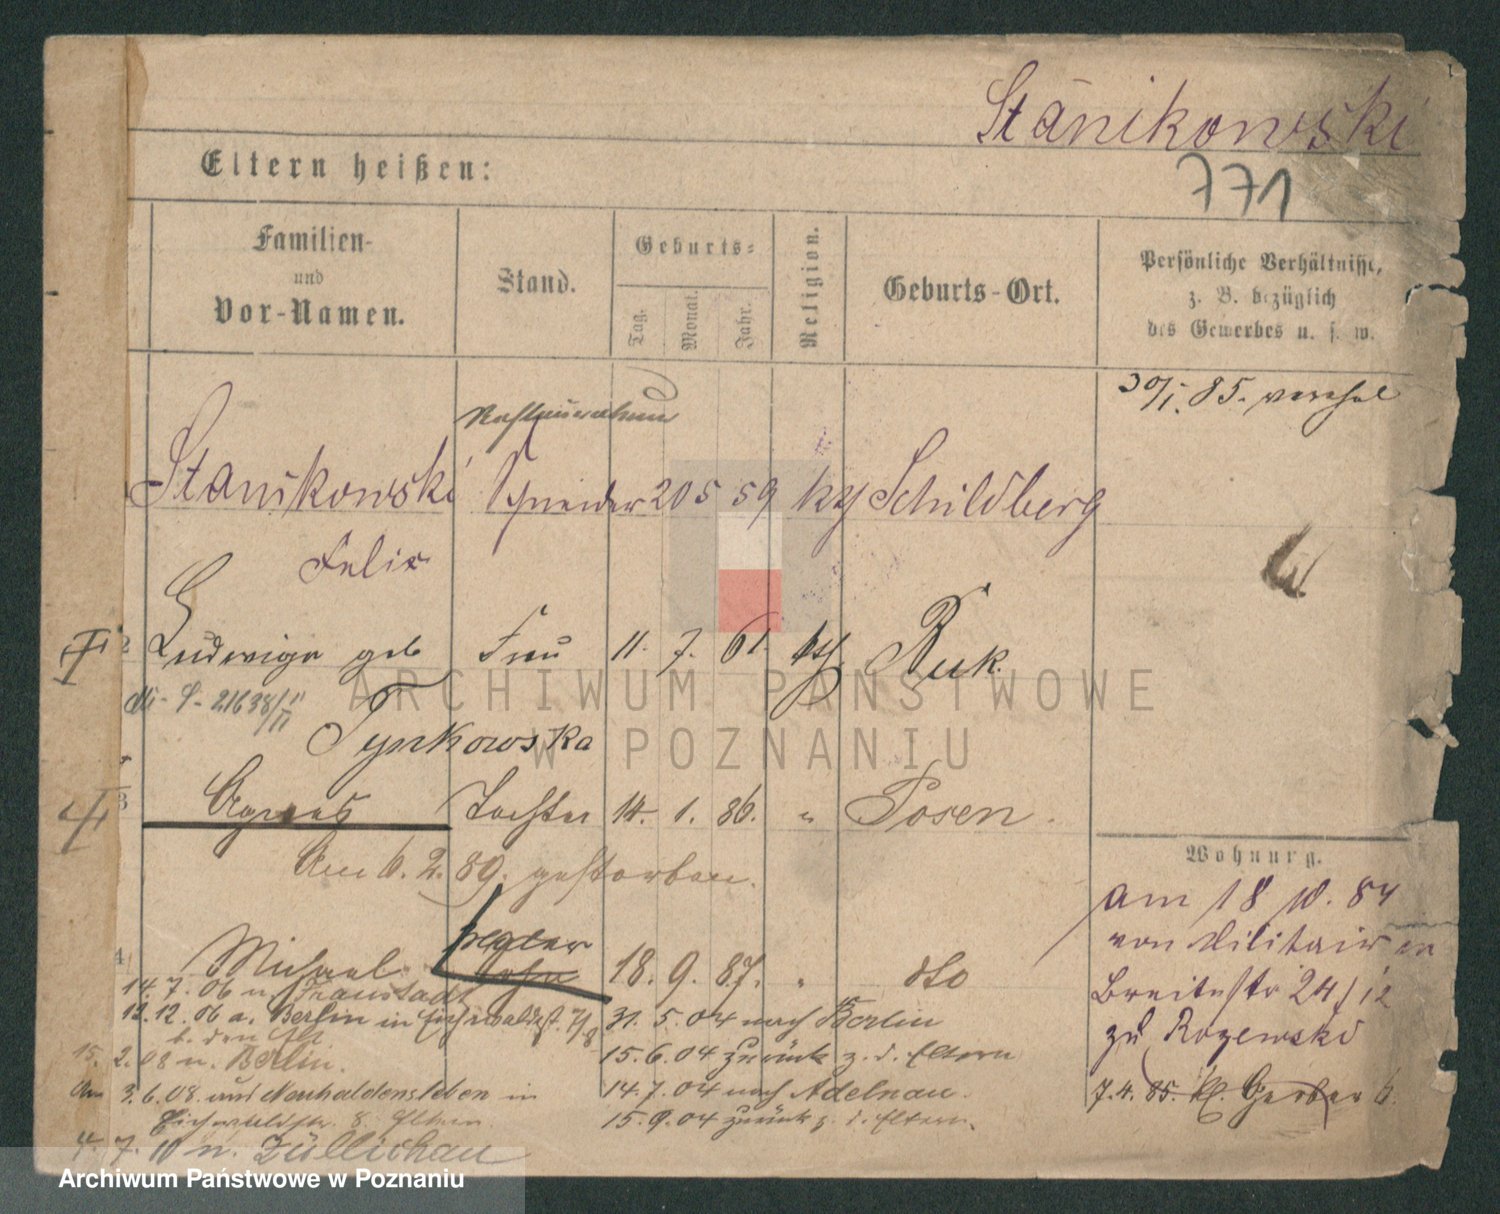 Stanikowski
771
Eltern heißen:
Familien-
und
Vor-Namen.
Stand.
Geburts-
Tag.
Monat.
Jahr.
Religion.
Geburts-Ort.
Persönliche Verhältnisse,
z. B. bezüglich
des Gewerbes u. s. w.
30/1. 85. verehel
Stanikowski Schneider 20 5 59 kth Schildberg
Felix
2 Ludwiga geb Frau 11. 7. 61. kth. Buk.
Tynkowska
3 Agnes Tochter 14. 1. 86. " Posen.
Am 6. 2. 89. gestorben.
4 Michael Sohn 18. 9. 87. " dto
14. 7. 06 n. Fraustadt
12. 12. 06 a. Berlin in
b. den Elt
15. 2. 08 n. Berlin.
Am 3. 6. 08. aus Neuhaldensleben in
8. Eltern.
4. 7. 10 n. Züllichau
31. 5. 04 nach Berlin
15. 6. 04 zurück z. d. Eltern
14. 7. 04 nach Adelnau.
15. 9. 04 zurück z. d. Eltern.
Wohnung.
am 18 10. 84
von Militair in
Breitestr 24/
zu Rozewski
7. 4. 85. Kl. Gerber 6.
ARCHIWUM PAŃSTWOWE
W POZNANIU
Archiwum Państwowe w Poznaniu